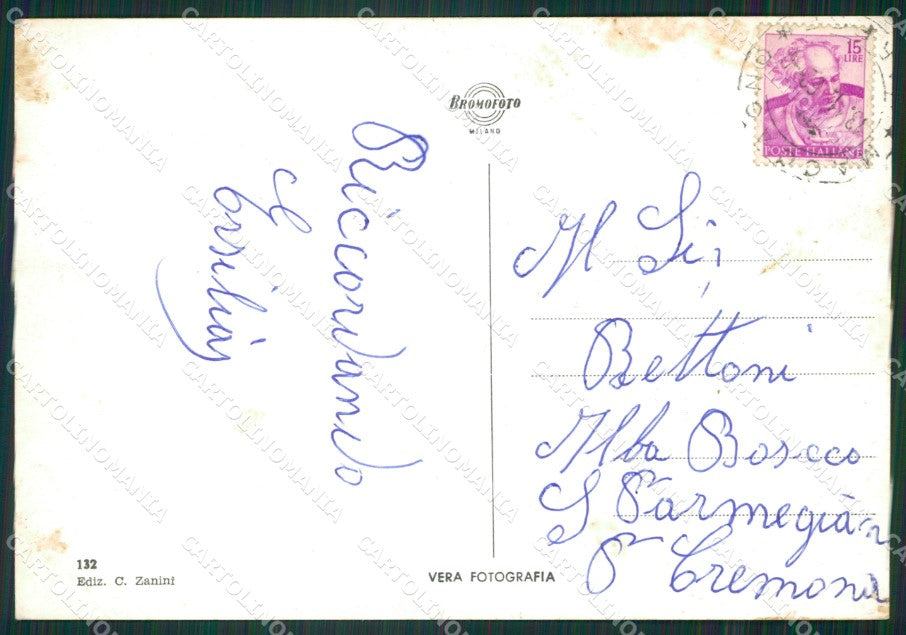 BROMOFOTO
MILANO
15
LIRE
POSTE ITALIANE
Riccordando
Ersilia
M Sig
Bettoni
Alba Bosoco
S Parmegian
Pr Cremona
132
Ediz. C. Zanini
VERA FOTOGRAFIA
CARTOLINOMANIA